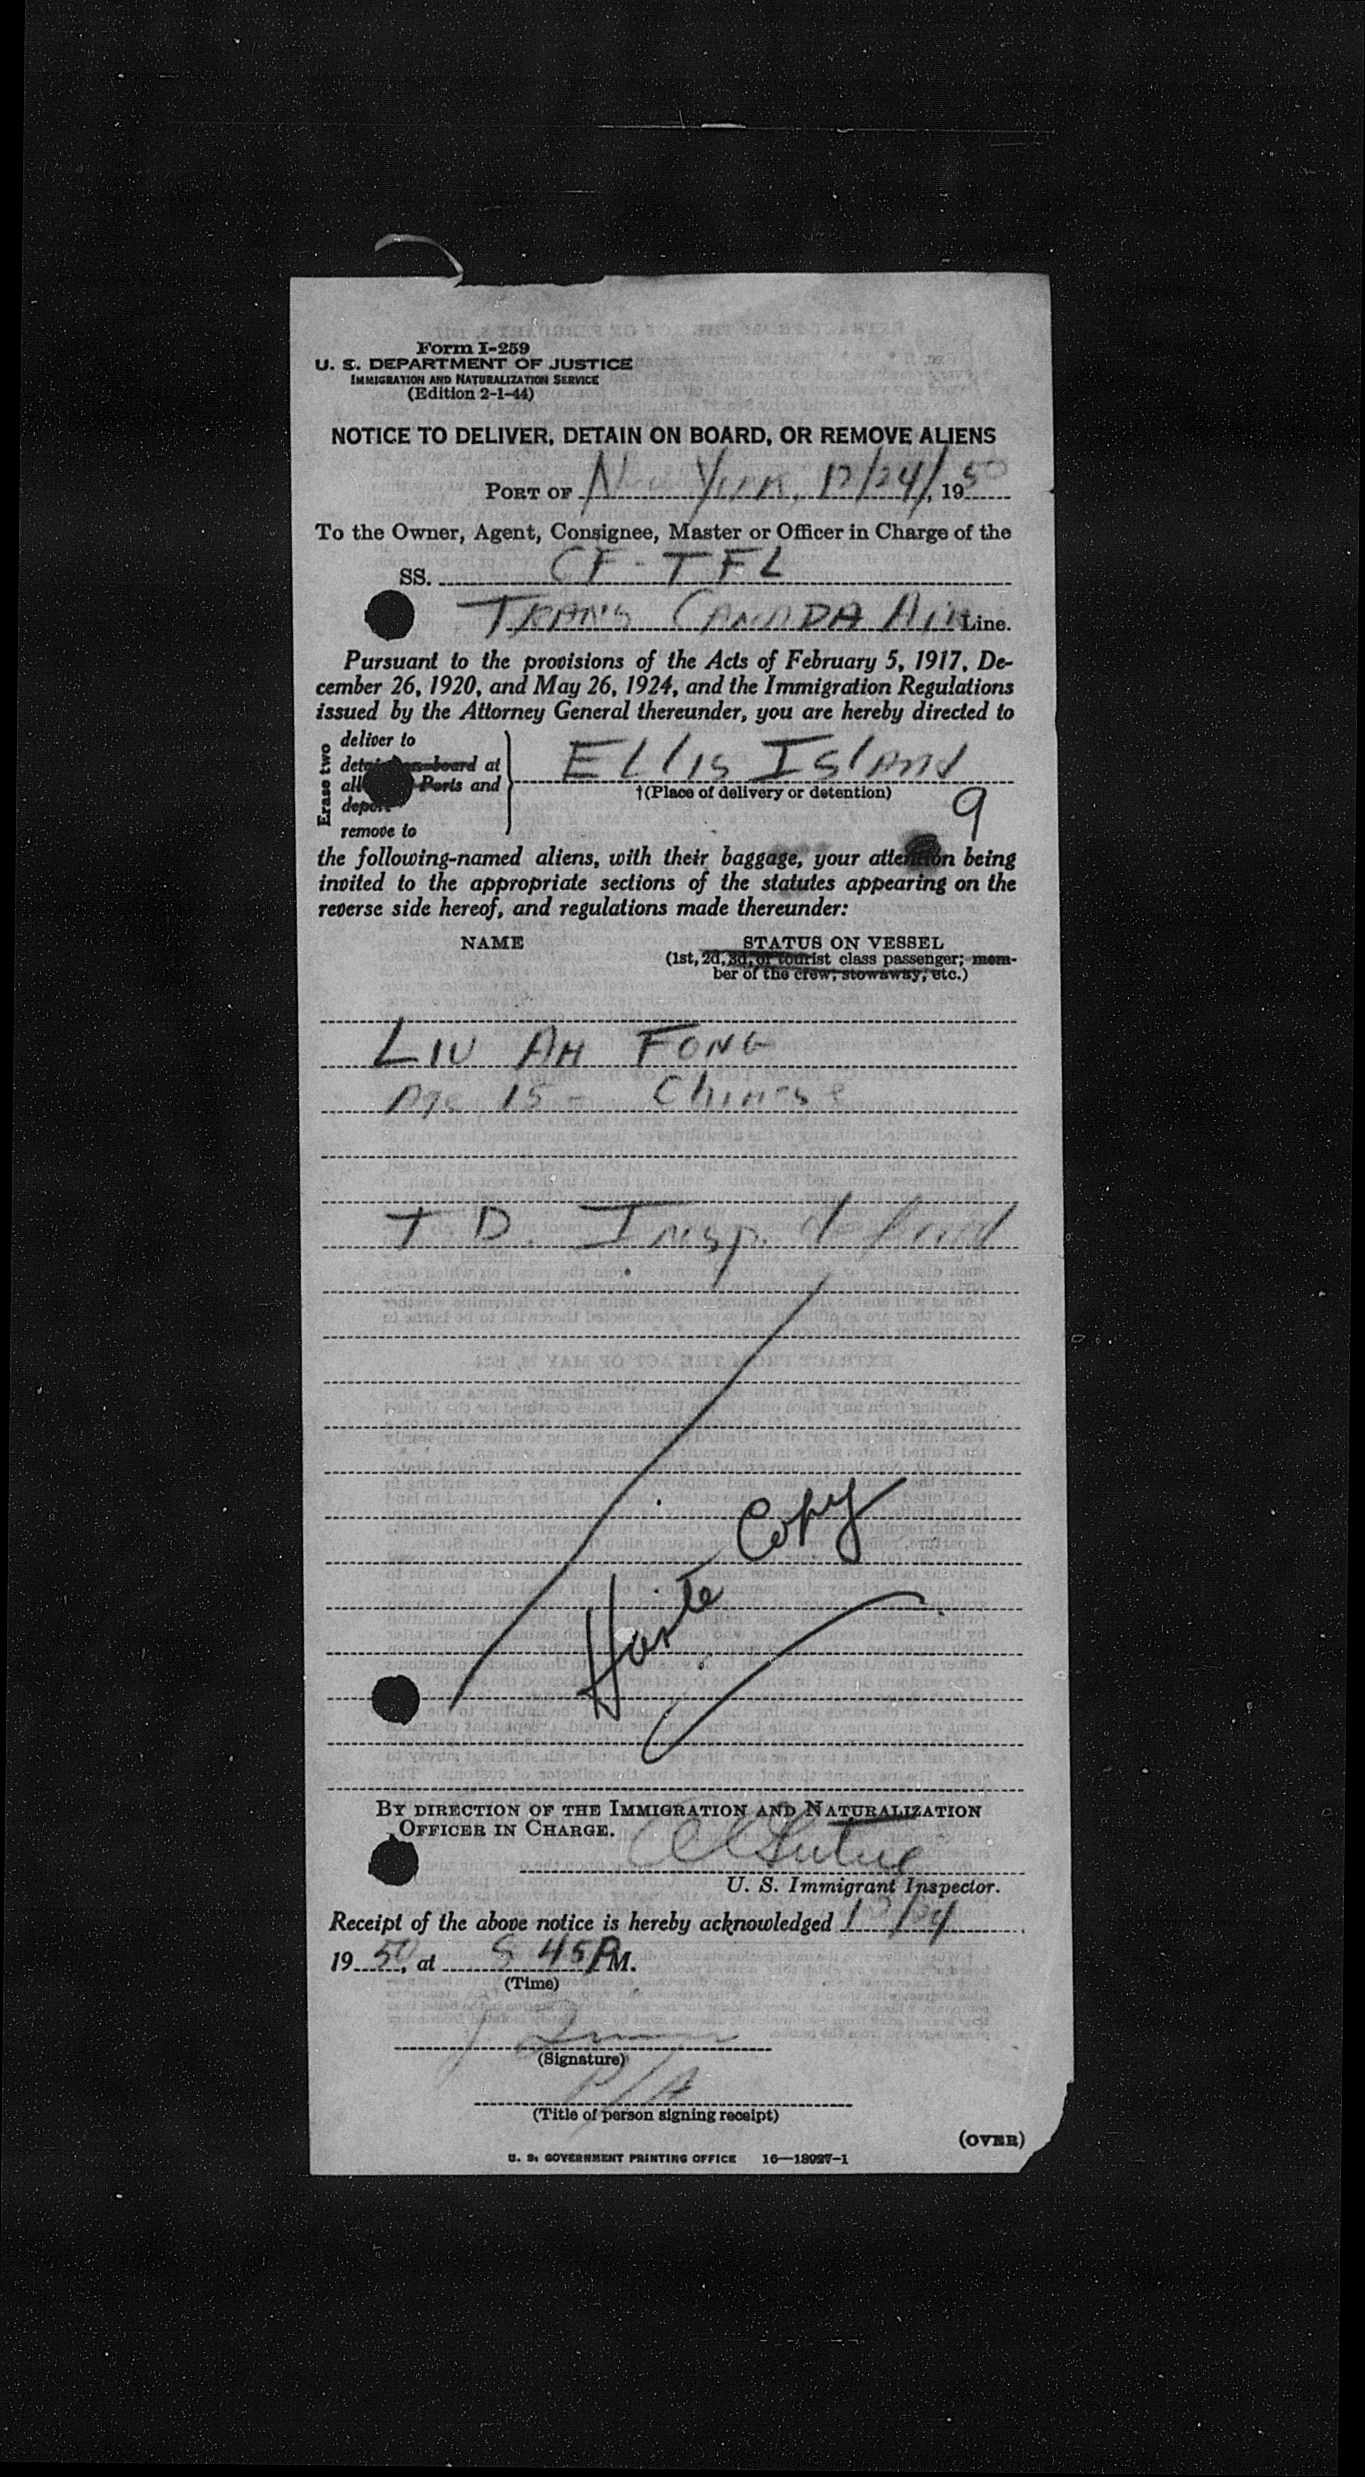 Form I-259
U. S. DEPARTMENT OF JUSTICE
IMMIGRATION AND NATURALIZATION SERVICE
(Edition 2-1-44)
NOTICE TO DELIVER, DETAIN ON BOARD, OR REMOVE ALIENS
PORT OF New York, 12/24/, 1950
To the Owner, Agent, Consignee, Master or Officer in Charge of the
SS. CF-TFL
TRANS CANADA Air Line.
Pursuant to the provisions of the Acts of February 5, 1917, De-
cember 26, 1920, and May 26, 1924, and the Immigration Regulations
issued by the Attorney General thereunder, you are hereby directed to
Erase two
deliver to
detain on board at
all Ports and
deport
remove to
Ellis Island
†(Place of delivery or detention)
9
the following-named aliens, with their baggage, your attention being
invited to the appropriate sections of the statutes appearing on the
reverse side hereof, and regulations made thereunder:
NAME STATUS ON VESSEL
(1st, 2d, 3d, or tourist class passenger; mem-
ber of the crew; stowaway; etc.)
LIU AH FONG
Age 15 - Chinese
T D. Insp.
Haste Copy
BY DIRECTION OF THE IMMIGRATION AND NATURALIZATION
OFFICER IN CHARGE.
U. S. Immigrant Inspector.
Receipt of the above notice is hereby acknowledged 12/24
1950, at 5 45 PM.
(Time)
(Signature)
P/A
(Title of person signing receipt)
(OVER)
U. S. GOVERNMENT PRINTING OFFICE 16—18027-1